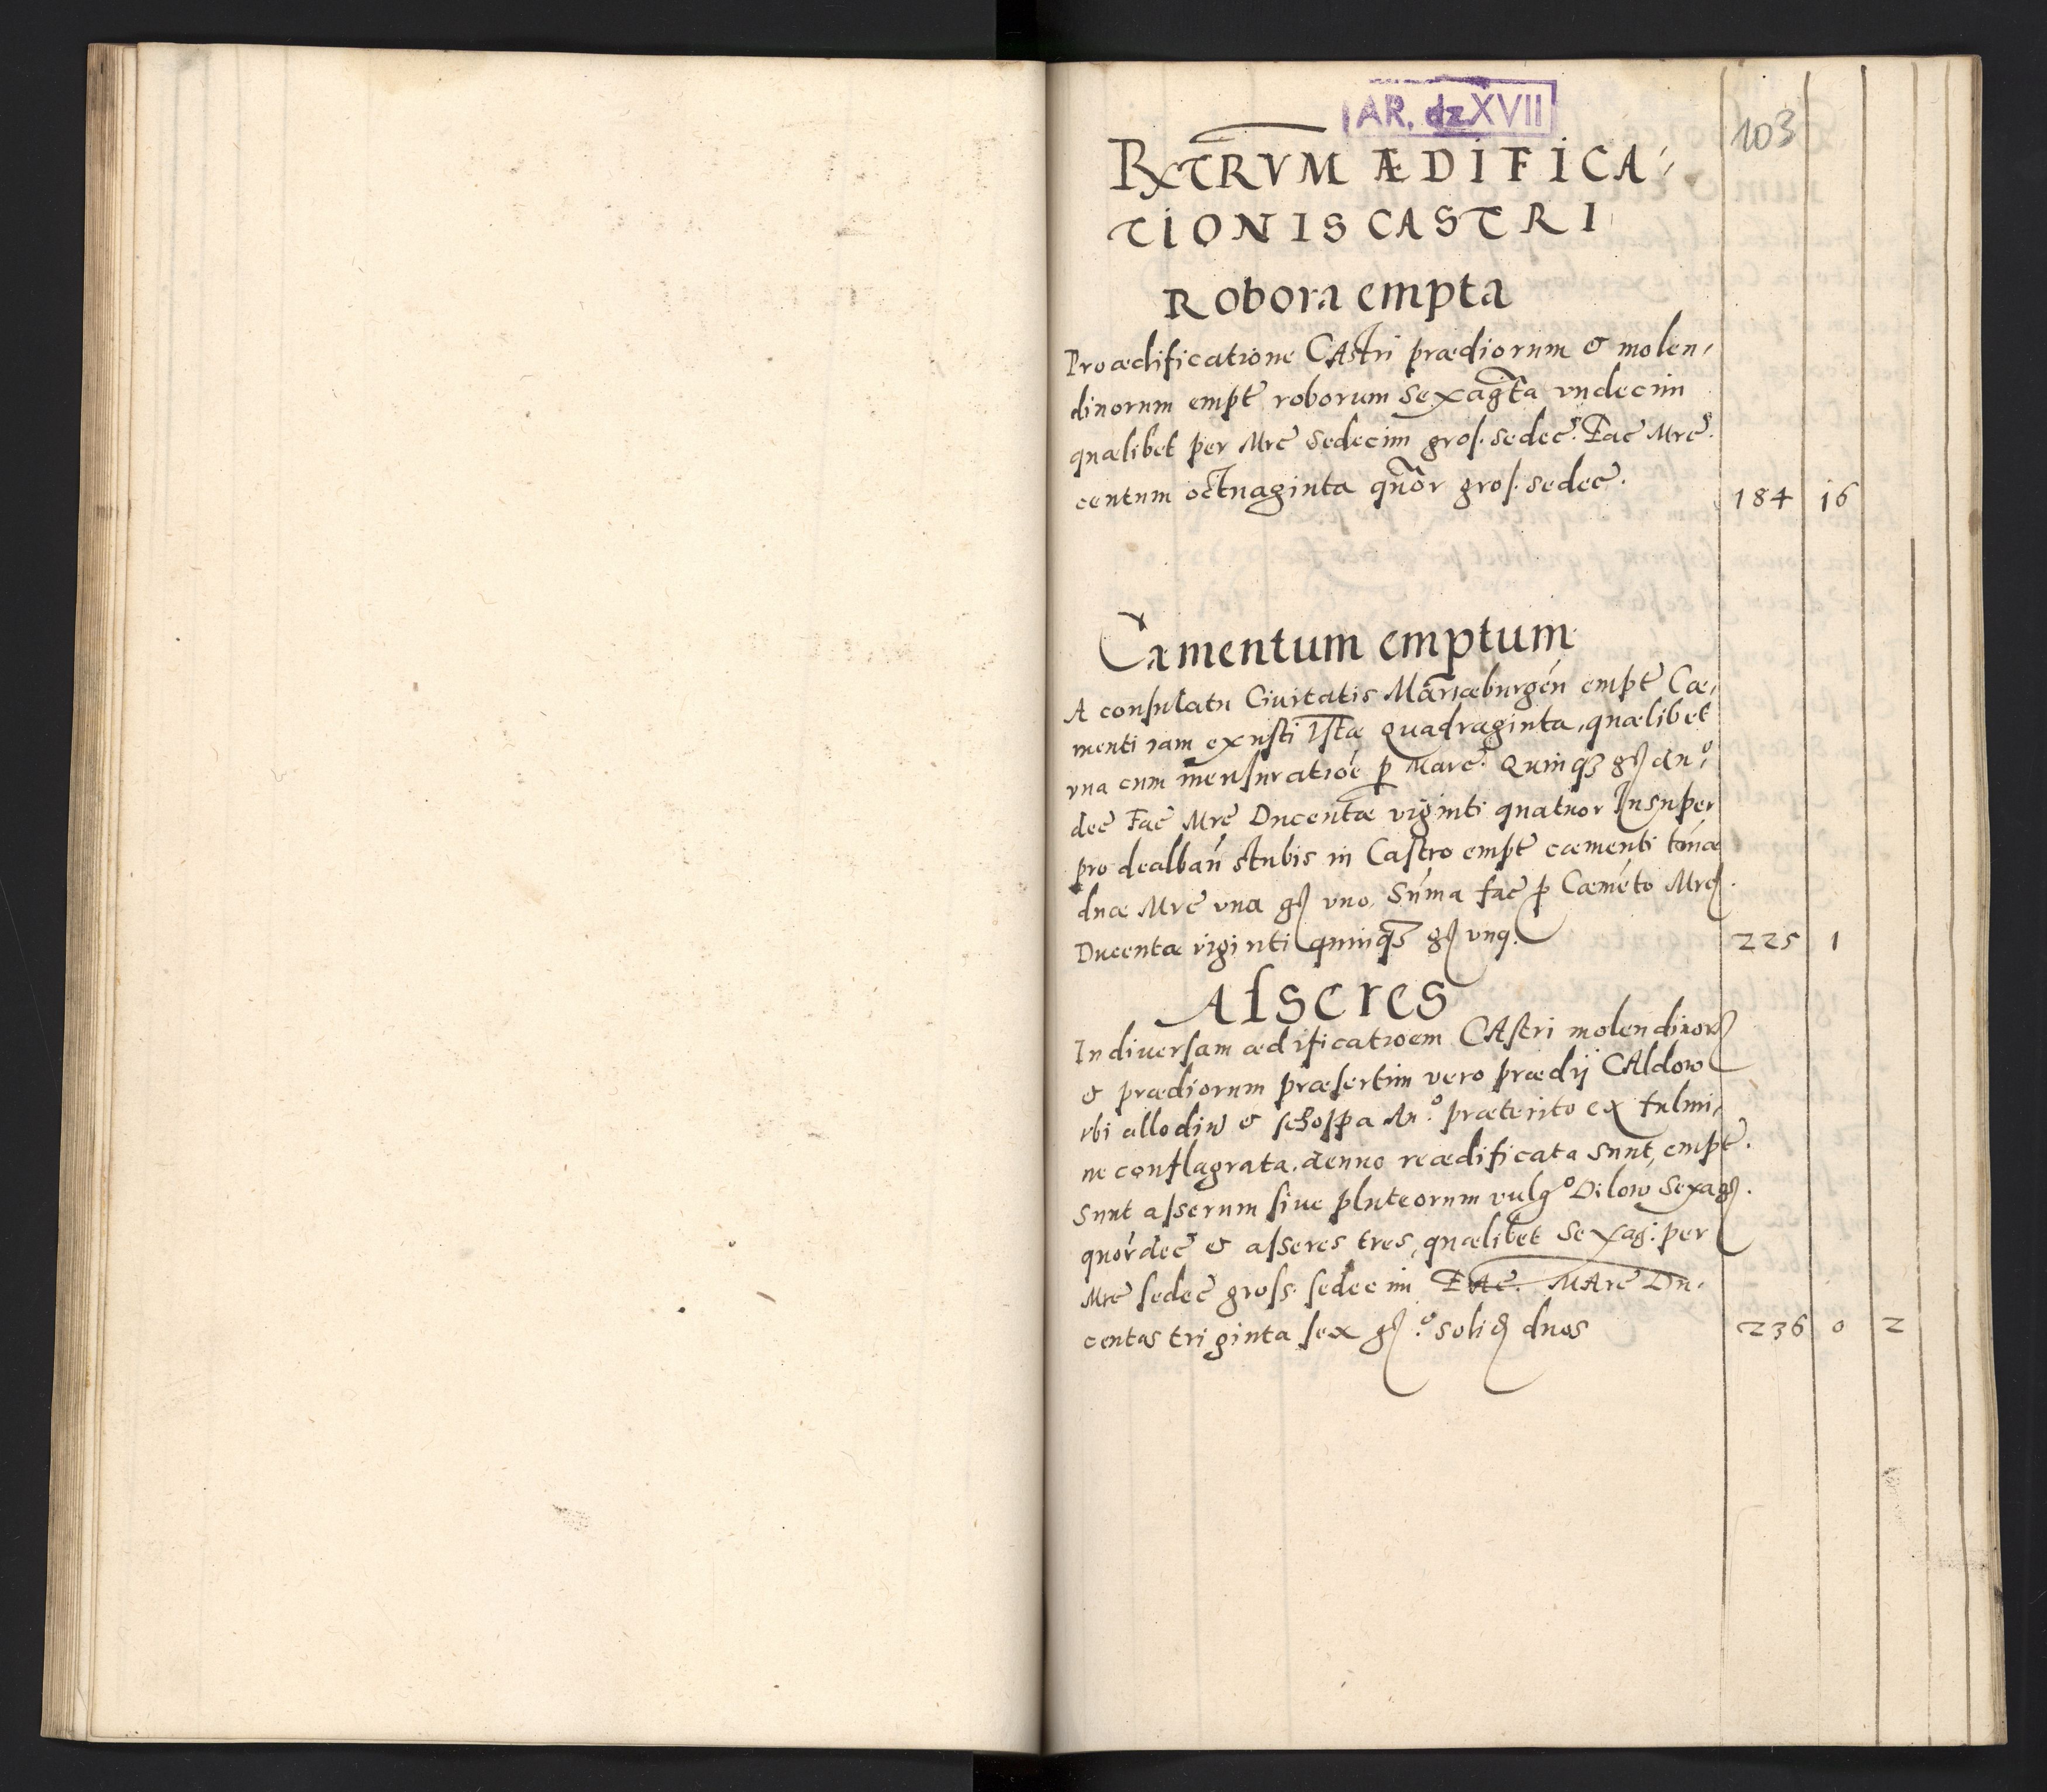 AR. dz XVII
103
RXTRVM ÆDIFICA-
TIONIS CASTRI
Robora empta
Pro ædificatione CAstri prædiorum & molen,
dinorum empt roborum Sexagta vndecim
quælibet per Mrc Sedecim gros. sedec. Fac Mrc.
centum octuaginta quor gros. sedec. 184 16
Cæmentum emptum
A consulatu Ciuitatis Mariæburgen empt Cæ,
menti iam exusti lstæ Quadraginta, quælibet
vna cum mensuratioe p Marc. Quinq3 gs duo,
dec Fac Mrc Ducentæ viginti quatuor Insuper
pro dealban stubis in Castro empt cæmenti tonæ
duæ Mrc vna gs vno, Suma fac p Cæmeto Mrc.
Ducentæ viginti quinq3 gs vno. 225 1
Asseres
In diuersam ædificatioem CAstri molendinor
& prædiorum præsertim vero prædij CAldow
vbi allodiu & schospa Ano. præterito ex fulmi,
ne conflagrata, denuo reædificata sunt, empt.
Sunt asserum siue pluteorum vulgo Dilow Sexag.
quordec & asseres tres, quælibet Sexag. per
Mrc sedec gross. sedecim FAc. MArc Du,
centas triginta sex gs. o solid duos 236 0 2